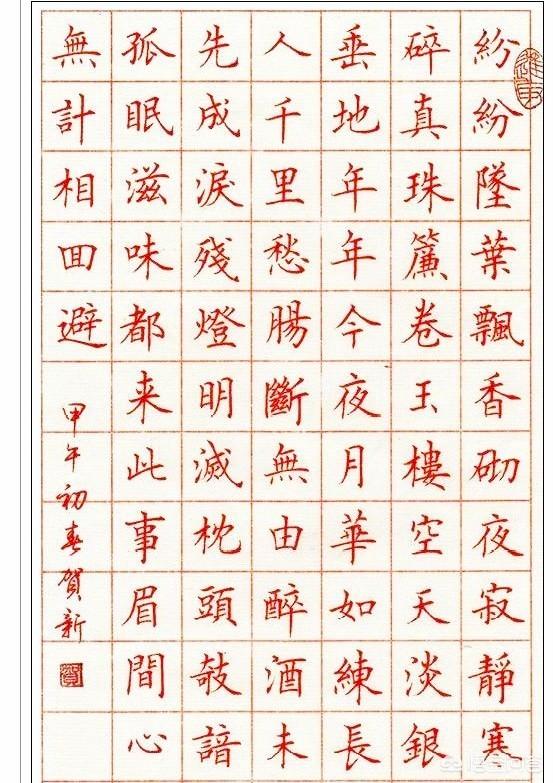 紛紛墜葉飄香砌夜寂靜寒
碎真珠簾卷玉樓空天淡銀
垂地年年今夜月華如練長
人千里愁腸斷無由醉酒未
先成淚殘燈明滅枕頭敧諳
孤眠滋味都来此事眉間心
無計相囬避
甲午初春賀新
賀